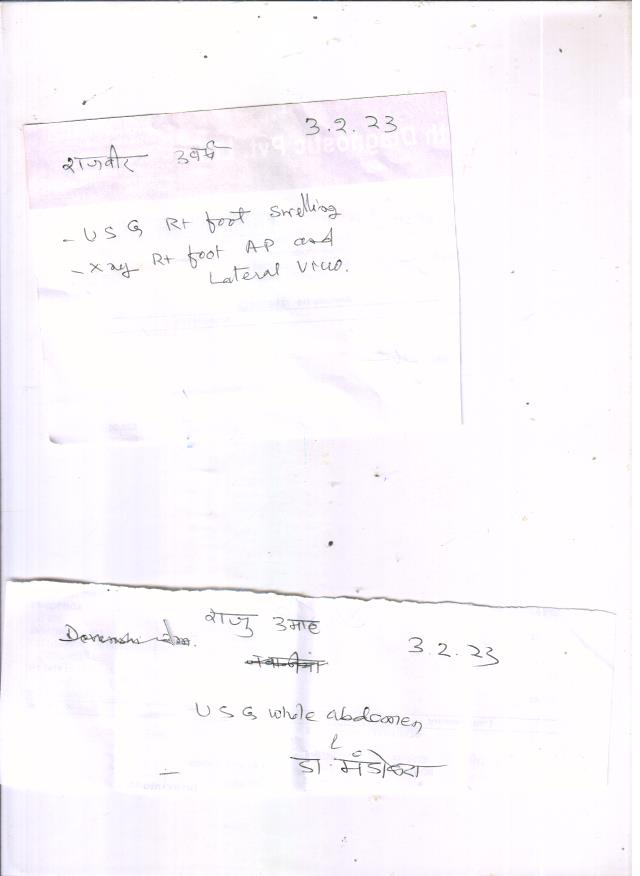 3.2.23
राजवीर 3 वर्ष
- USG Rt foot Swelling
- Xray Rt foot AP and
Lateral view.
राजु 3 माह
3.2.23
USG whole abdomen
डा. मंडोवरा